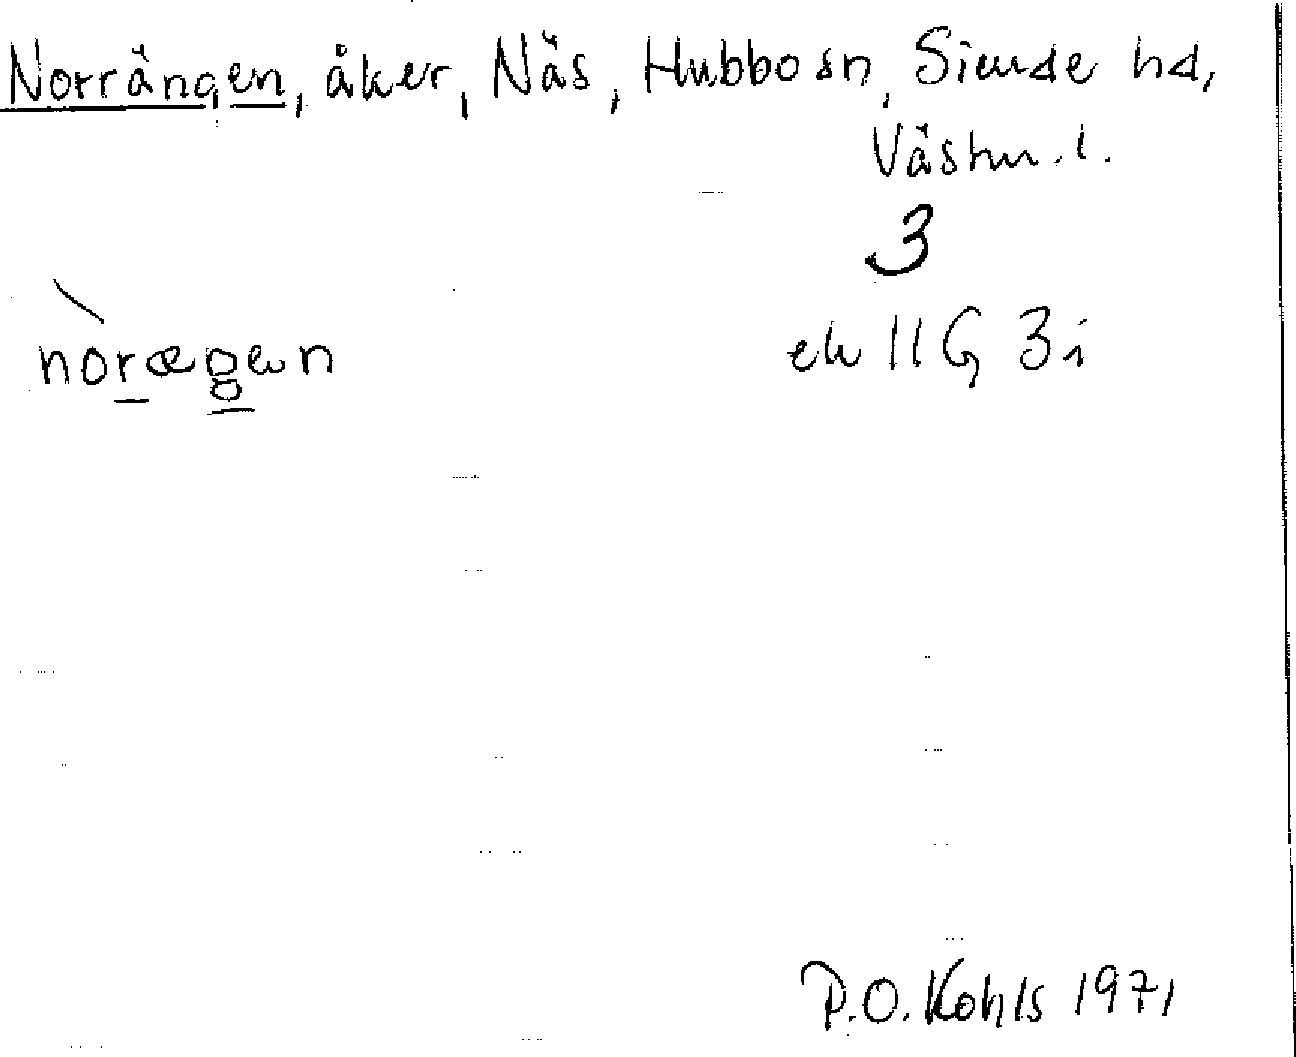 Norrängen, åker, Näs, Hubbo sn, Siende hd,
Västm. l.
3
noræŋen
ek 11G 3i
P.O. Kohls 1971